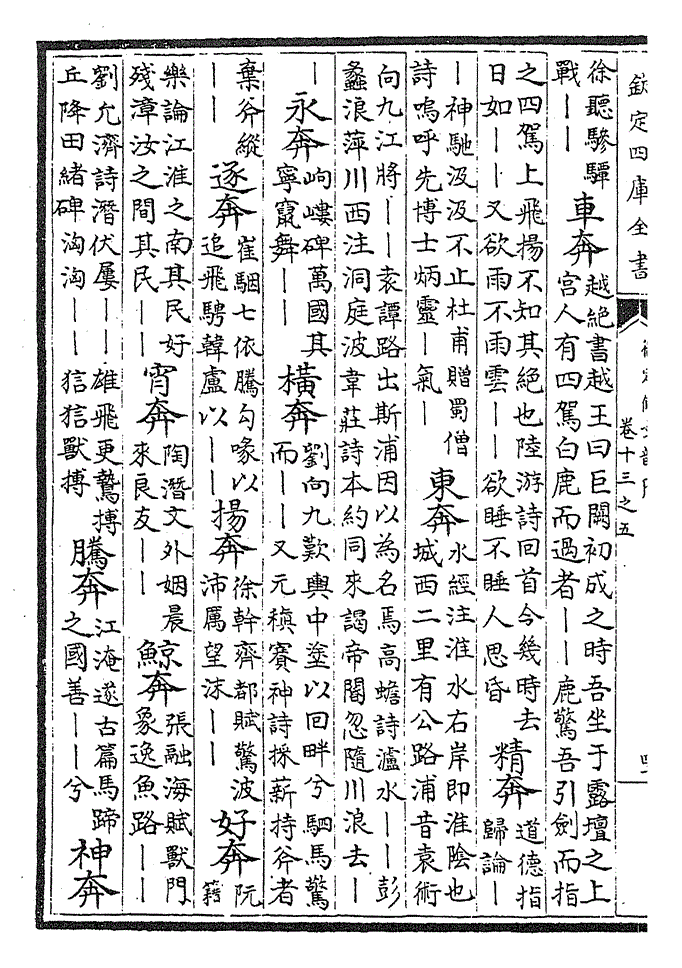 欽定四庫全書
卷十三之五
徐聽驂驔
戰——
車奔
越絕書越王曰巨闕初成之時吾坐于露壇之上
宮人有四駕白鹿而過者——鹿驚吾引劍而指
之四駕上飛揚不知其絕也陸游詩回首今幾時去
日如——又欲雨不雨雲——欲睡不睡人思昏
精奔
道德指
歸論—
—神馳汲汲不止杜甫贈蜀僧
詩嗚呼先博士炳靈—氣—
東奔
水經注淮水右岸即淮陰也
城西二里有公路浦昔袁術
向九江將——袁譚路出斯浦因以為名焉高蟾詩瀘水——彭
蠡浪萍川西注洞庭波韋莊詩本約同來謁帝閽忽隨川浪去—
—
永奔
岣嶁碑萬國其
寧竄舞——
橫奔
劉向九歎輿中塗以回畔兮駟馬驚
而——又元稹賽神詩採薪持斧者
棄斧縱
——
逐奔
崔駰七依騰勾喙以
追飛騁韓盧以——
揚奔
徐幹齊都賦驚波
沛厲望沫——
好奔
阮
籍
樂論江淮之南其民好
殘漳汝之間其民——
宵奔
陶潛文外姻晨
來良友——
鯨奔
張融海賦獸門
象逸魚路——
劉允濟詩潛伏屢——雄飛更鷙搏
丘降田緒碑洶洶——狺狺獸搏
騰奔
江淹遂古篇馬蹄
之國善——兮
神奔